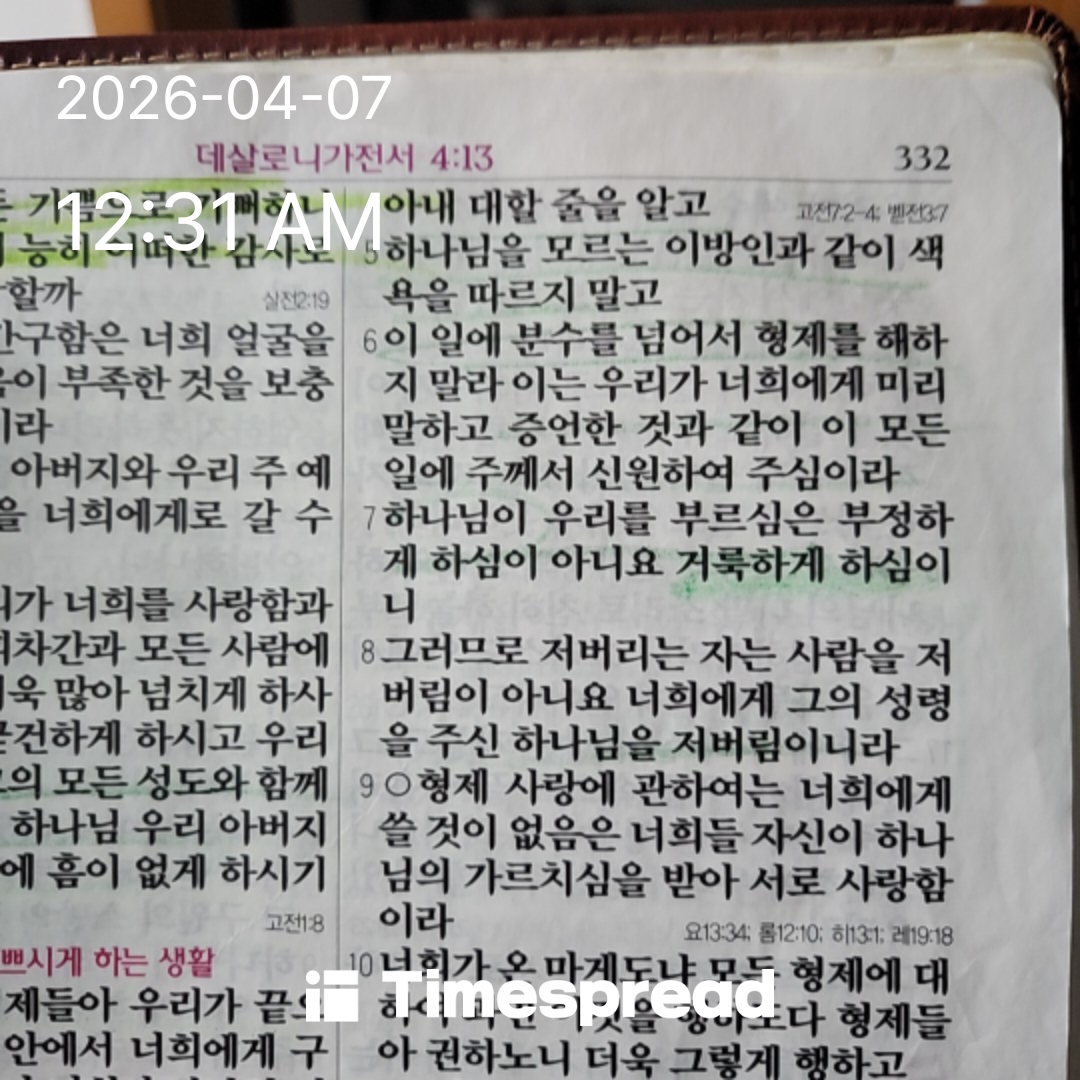 2026-04-07
12:31 AM
데살로니가전서 4:13
332
능히 어떠한 감사로
할까
살전2:19
간구함은 너희 얼굴을
부족한 것을 보충
이라
아버지와 우리 주 예
을 너희에게로 갈 수
너희를 사랑함과
피차간과 모든 사람에
더욱 많아 넘치게 하사
굳건하게 하시고 우리
그의 모든 성도와 함께
하나님 우리 아버지
에 흠이 없게 하시기
고전1:8
쁘시게 하는 생활
제들아 우리가
안에서 너희에게 구
아내 대할 줄을 알고
고전7:2-4; 벧전3:7
5 하나님을 모르는 이방인과 같이 색
욕을 따르지 말고
6 이 일에 분수를 넘어서 형제를 해하
지 말라 이는 우리가 너희에게 미리
말하고 증언한 것과 같이 이 모든
일에 주께서 신원하여 주심이라
7 하나님이 우리를 부르심은 부정하
게 하심이 아니요 거룩하게 하심이
니
8 그러므로 저버리는 자는 사람을 저
버림이 아니요 너희에게 그의 성령
을 주신 하나님을 저버림이니라
9 ○형제 사랑에 관하여는 너희에게
쓸 것이 없음은 너희들 자신이 하나
님의 가르치심을 받아 서로 사랑함
이라
요13:34; 롬12:10; 히13:1; 레19:18
10 너희가 온 마게도냐 모든 형제에 대
형제들
아 권하노니 더욱 그렇게 행하고
Timespread